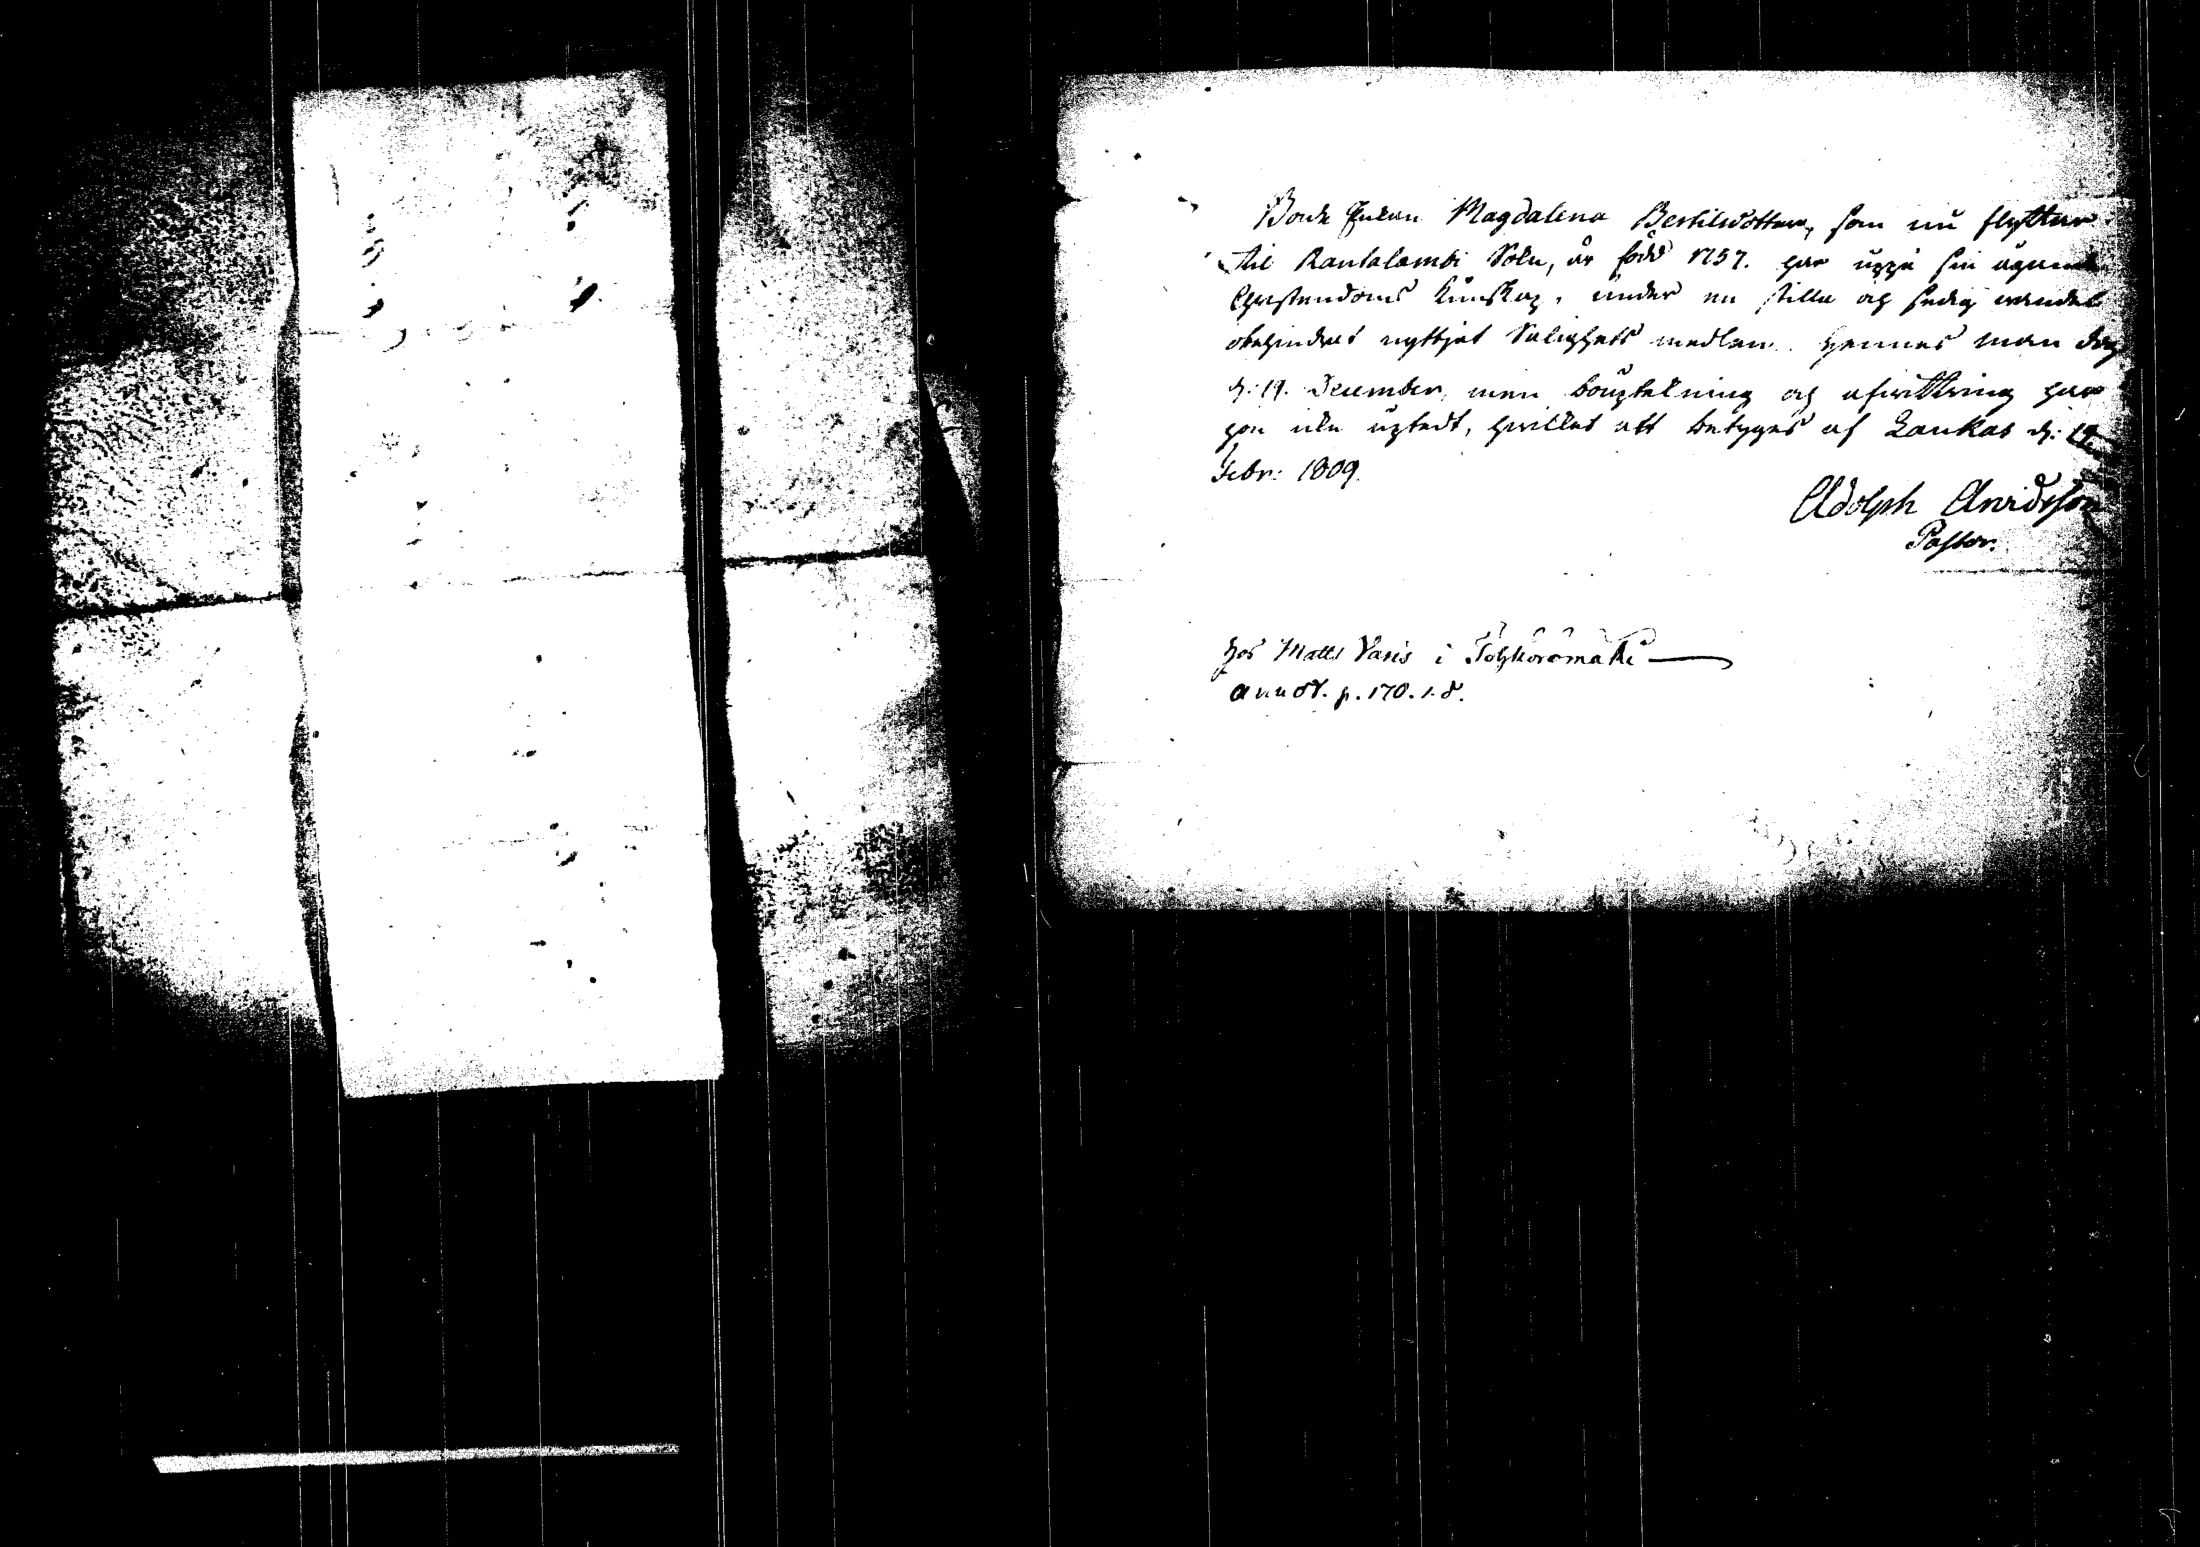 Bonde Enkan Magdalena Bertilsdotter, som nu flyttar
til Rautalambi Sokn, är född 1757. har uppå sin ägande
Christendoms kunskap, under en stilla och sedig vandel
obehindrat nyttjat Salighets medlen. Hennes man dog
d: 19. December, men bouptekning och afvittring har
hon icke uptedt, hvilket att betygas af Laukas d: 19
Febr: 1809.
Adolph Arvidsson
Pastor.
hos Matts Varis i
annot. p. 170. 1. d.